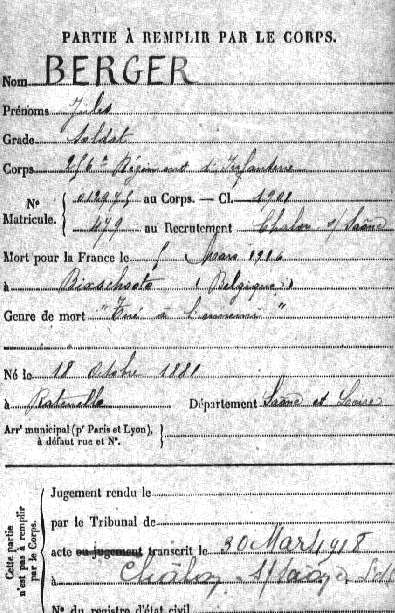 PARTIE À REMPLIR PAR LE CORPS.
Nom BERGER
Prénoms Jules
Grade Soldat
Corps 256e Régiment d'Infanterie
No Matricule. 012975 au Corps. — Cl. 1901
479 au Recrutement Chalon s/Saône
Mort pour la France le 5 Mars 1916
à Bixschoote (Belgique)
Genre de mort "Tué à l'ennemi"
Né le 18 Octobre 1881
à Ratenelle Département Saône et Loire
Arrt municipal (pr Paris et Lyon), à défaut rue et No.
Cette partie n'est pas à remplir par le Corps.
Jugement rendu le
par le Tribunal de
acte ou jugement transcrit le 30 Mars 1918
à Châlon s/Saône
No du registre d'état civil